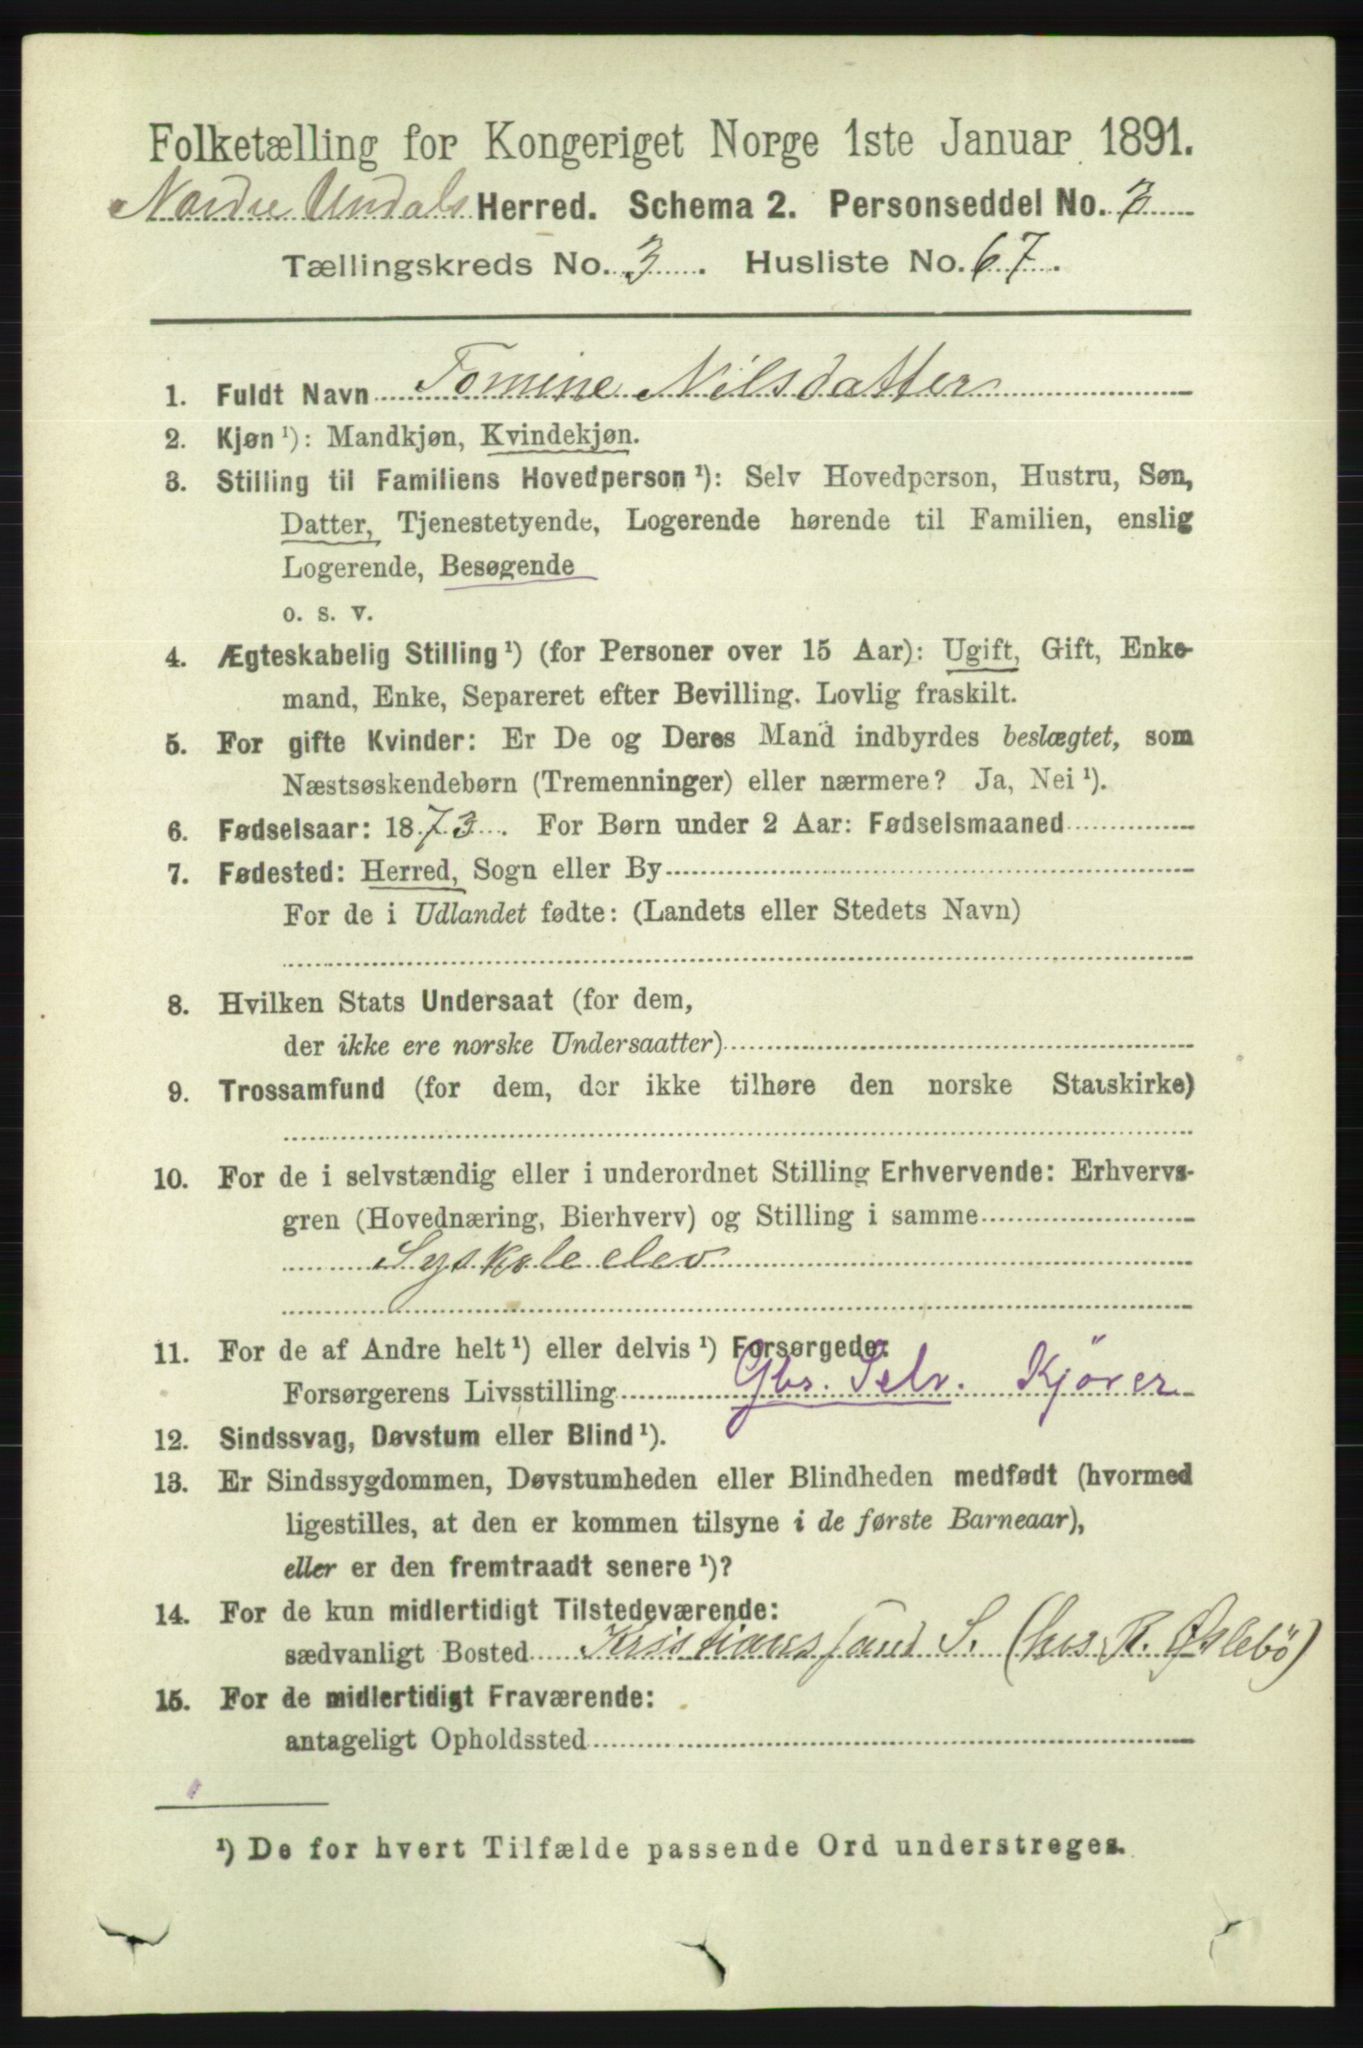 Folketælling for Kongeriget Norge 1ste Januar 1891.
Nordre Undals Herred. Schema 2. Personseddel No. 3
Tællingskreds No. 3. Husliste No. 67.
1. Fuldt Navn Tomine Nilsdatter
2. Kjøn ¹): Mandkjøn, Kvindekjøn.
3. Stilling til Familiens Hovedperson ¹): Selv Hovedperson, Hustru, Søn,
Datter, Tjenestetyende, Logerende hørende til Familien, enslig
Logerende, Besøgende
o. s. v.
4. Ægteskabelig Stilling ¹) (for Personer over 15 Aar): Ugift, Gift, Enke-
mand, Enke, Separeret efter Bevilling. Lovlig fraskilt.
5. For gifte Kvinder: Er De og Deres Mand indbyrdes beslægtet, som
Næstsøskendebørn (Tremenninger) eller nærmere? Ja, Nei ¹).
6. Fødselsaar: 1873. For Børn under 2 Aar: Fødselsmaaned
7. Fødested: Herred, Sogn eller By
For de i Udlandet fødte: (Landets eller Stedets Navn)
8. Hvilken Stats Undersaat (for dem,
der ikke ere norske Undersaatter)
9. Trossamfund (for dem, der ikke tilhøre den norske Statskirke)
10. For de i selvstændig eller i underordnet Stilling Erhvervende: Erhvervs-
gren (Hovednæring, Bierhverv) og Stilling i samme
Syskoleelev
11. For de af Andre helt ¹) eller delvis ¹) Forsørgede:
Forsørgerens Livsstilling Gbr. Selv. Kjører
12. Sindssvag, Døvstum eller Blind ¹).
13. Er Sindssygdommen, Døvstumheden eller Blindheden medfødt (hvormed
ligestilles, at den er kommen tilsyne i de første Barneaar),
eller er den fremtraadt senere ¹)?
14. For de kun midlertidigt Tilstedeværende:
sædvanligt Bosted Kristianssand S. (hos R. Øslebö)
15. For de midlertidigt Fraværende:
antageligt Opholdssted
¹) De for hvert Tilfælde passende Ord understreges.